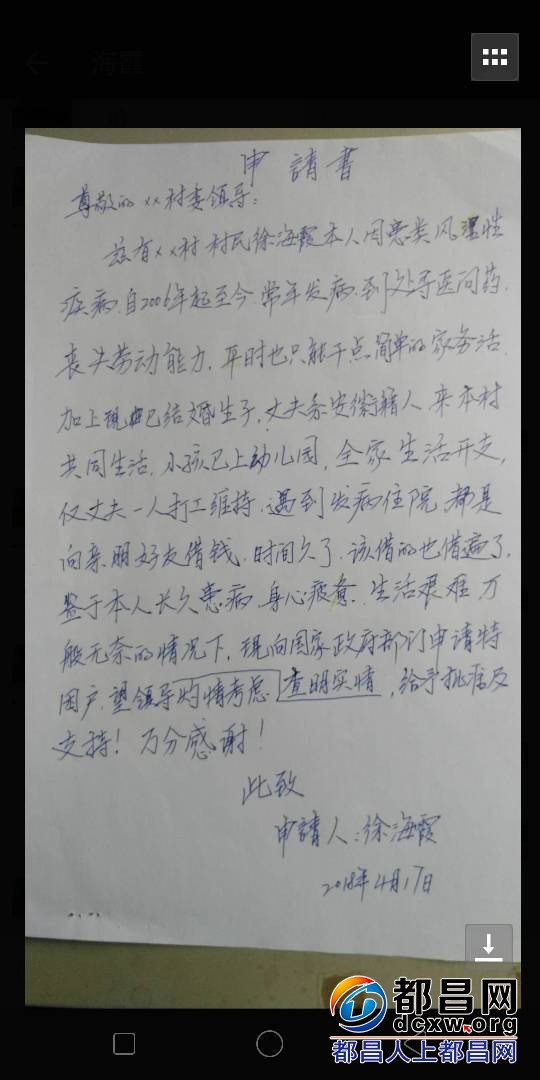 海霞
申請書
尊敬的××村委领导：
兹有××村村民徐海霞本人因患类风湿性
疾病，自2006年起至今常年发病，到处寻医问药，
丧失劳动能力，平时也只能干点简单的家务活，
加上现已结婚生子，丈夫系安徽籍人，来本村
共同生活，小孩已上幼儿园，全家生活开支，
仅丈夫一人打工维持，遇到发病住院，都是
向亲朋好友借钱，时间久了，该借的也借遍了，
鉴于本人长久患病，身心疲惫，生活艰难，万
般无奈的情况下，现向国家政府部门申请特
困户，望领导灼情考虑，查明实情，给予批准及
支持！万分感谢！
此致
申請人：徐海霞
2018年4月17日
都昌网
dcxw.org
都昌人上都昌网